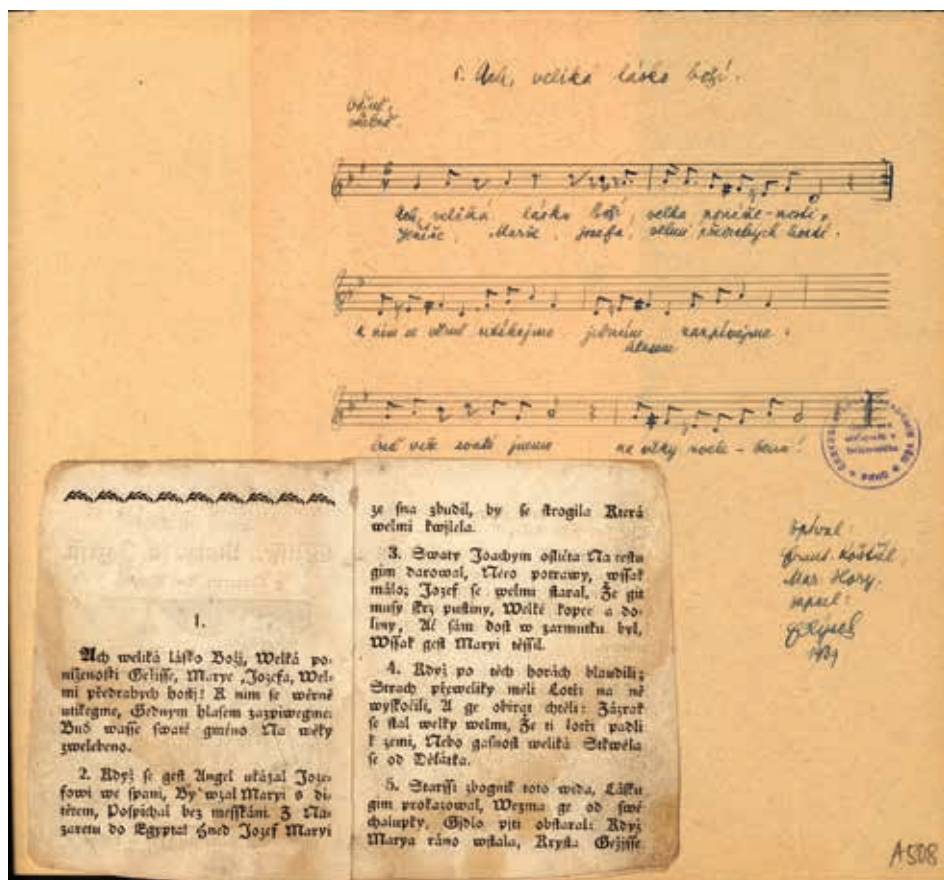 Ach, veliká lásko boží.
Ach, veliká lásko boží, velká poníže-nosti,
Ježíše, Marie, Josefa, velmi předrahých hostí.
K nim se věrně utíkejme, jedním zazpívejme:
hlasem
buď vaše svaté jméno na věky veleb-eno!
zpíval:
Frant. Košťál,
Mar. Hory.
zapsal:
A508
1.
Ach weliká lásko Boži, Welká po-
niženosti Gežisse, Marye, Jozefa, Wel-
mi předrahych hostj! K nim se wěrně
utikegme, Gednym hlasem zazpiwegme:
Bud wasse swaté gméno Na wěky
zwelebeno.
2. Když se gest Angel ukázal Joze-
fowi we spani, By wzal Maryi s di-
tětem, Pospichal bez messkáni. Z Na-
zaretu do Egypta! hned Jozef Maryi
ze sna zbudil, by se strogila Která
welmi kwjlela.
3. Swaty Joachym oslieta Na cestu
gim darowal, Něco potrawy, wssak
málo; Jozef se welmi staral, Že git
musy skrz pustiny, Welké kopce a do-
liny, Ač sám dost w zarmutku byl,
Wssak gest Maryi těssil.
4. Když po těch horách blaudili;
Strach přeweliky měli Lotři na ně
wyskočili, A ge obirat chtěli: Zázrak
se stal welky welmi, Že ti lotři padli
k zemi, Nebo gasnost weliká Stkwěla
se od Děťátka.
5. Starssi zbognik toto wida, Lásku
gim prokazowal, Wezma ge od swé
chalupky, Gjdlo piti obstaral: Když
Marya ráno wstala, Krysta Gežisse